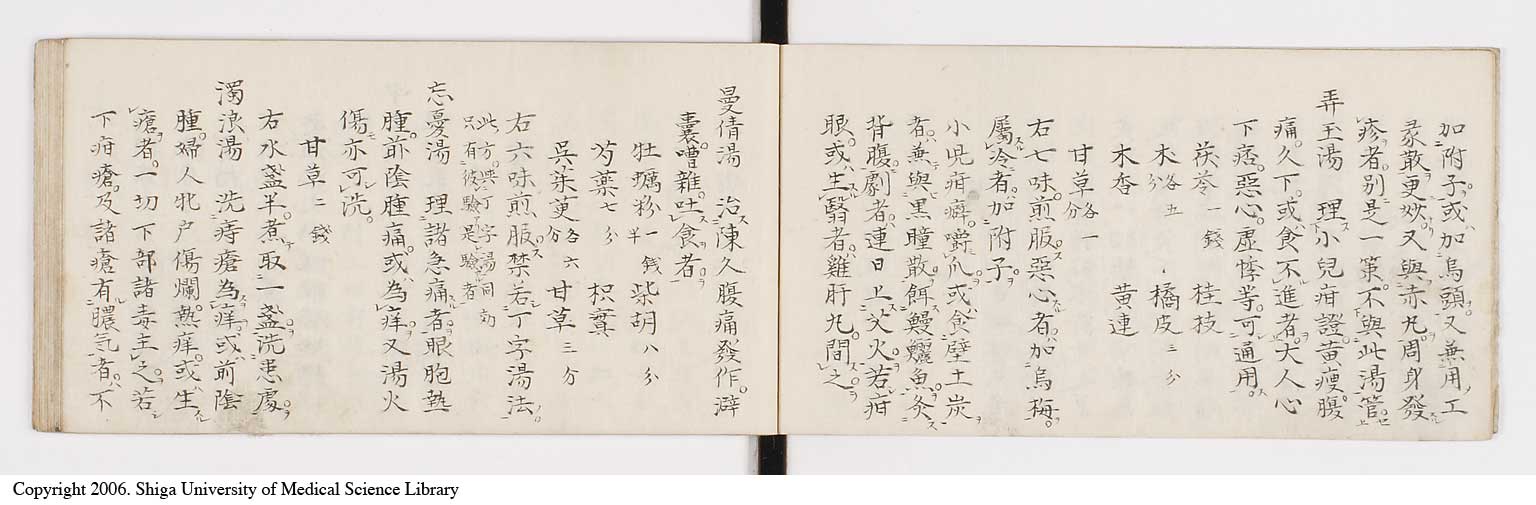 加附子或加烏頭又兼用工
家散更妙又與赤丸周身發
疹者別是一策不與此湯管
弄玉湯 理小兒疳證黃瘦腹
痛久下或食不進者大人心
下痞惡心虛悸等可通用
茯苓一錢 桂枝
朮各五分 橘皮三分
木香 黃連
甘草各一分
右七味煎服惡心者加烏梅
屬冷者加附子
小兒疳癖嚼爪或食壁土炭
者兼與黑瞳散餌鰻鱺魚灸
背腹劇者連日上火若疳
眼或生翳者雞肝丸間之
曼倩湯 治陳久腹痛發作澼
囊嘈雜吐食者
牡蠣粉一錢半 柴胡八分
芍藥七分 枳實
吳茱萸各六分 甘草三分
右六味煎服禁若丁字湯法
此方與丁字湯同効
只有彼驗是驗者
忘憂湯 理諸急痛者眼胞熱
腫前陰腫痛或為痒又湯火
傷亦可洗
甘草二錢
右水盞半煮取一盞洗患處
濁浪湯 洗痔瘡為痒或前陰
腫婦人牝戶傷爛熱痒或生
瘡者一切下部諸毒主之若
下疳瘡及諸瘡有膿氣者不
Copyright 2006. Shiga University of Medical Science Library